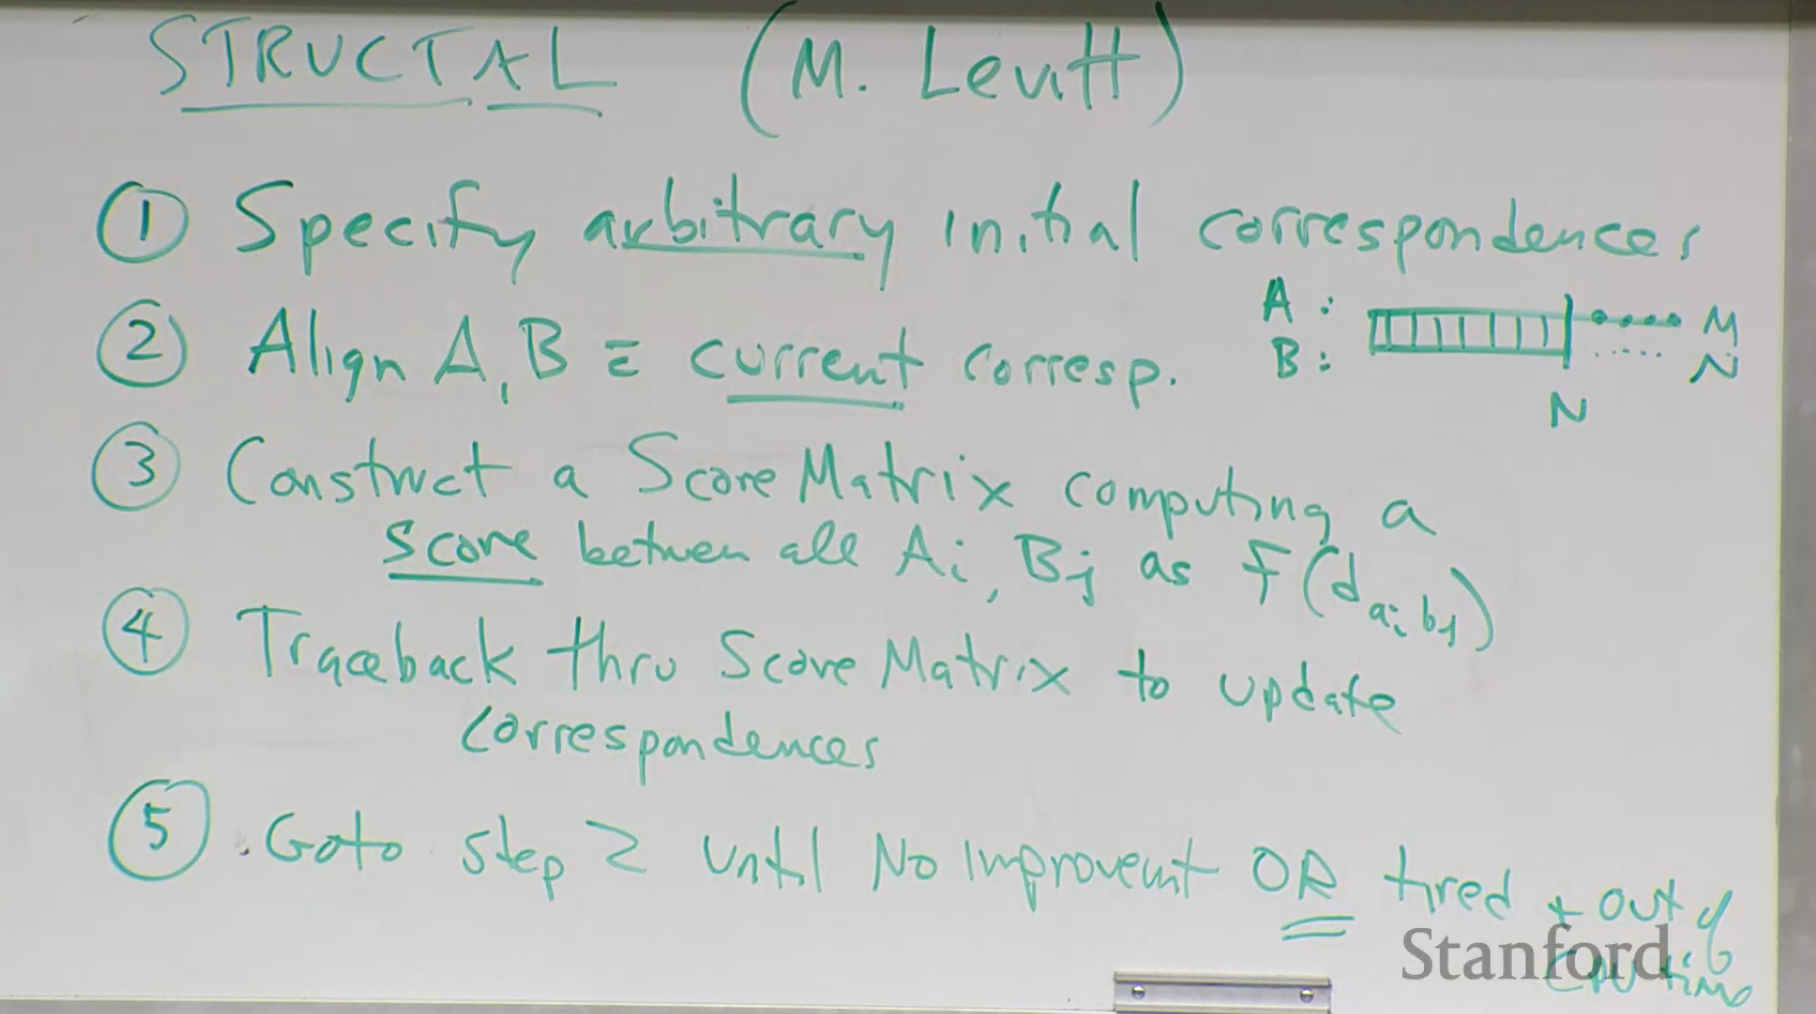 STRUCTAL (M. Levitt)
① Specify arbitrary initial correspondences
A:
M
② Align A, B = current corresp.
B:
N
N
③ Construct a Score Matrix computing a
score between all Ai, Bj as f(d ai bj)
④ Traceback thru Score Matrix to update
correspondences
⑤ Goto step 2 until No Improvemt OR tired + out of
CPU time
Stanford